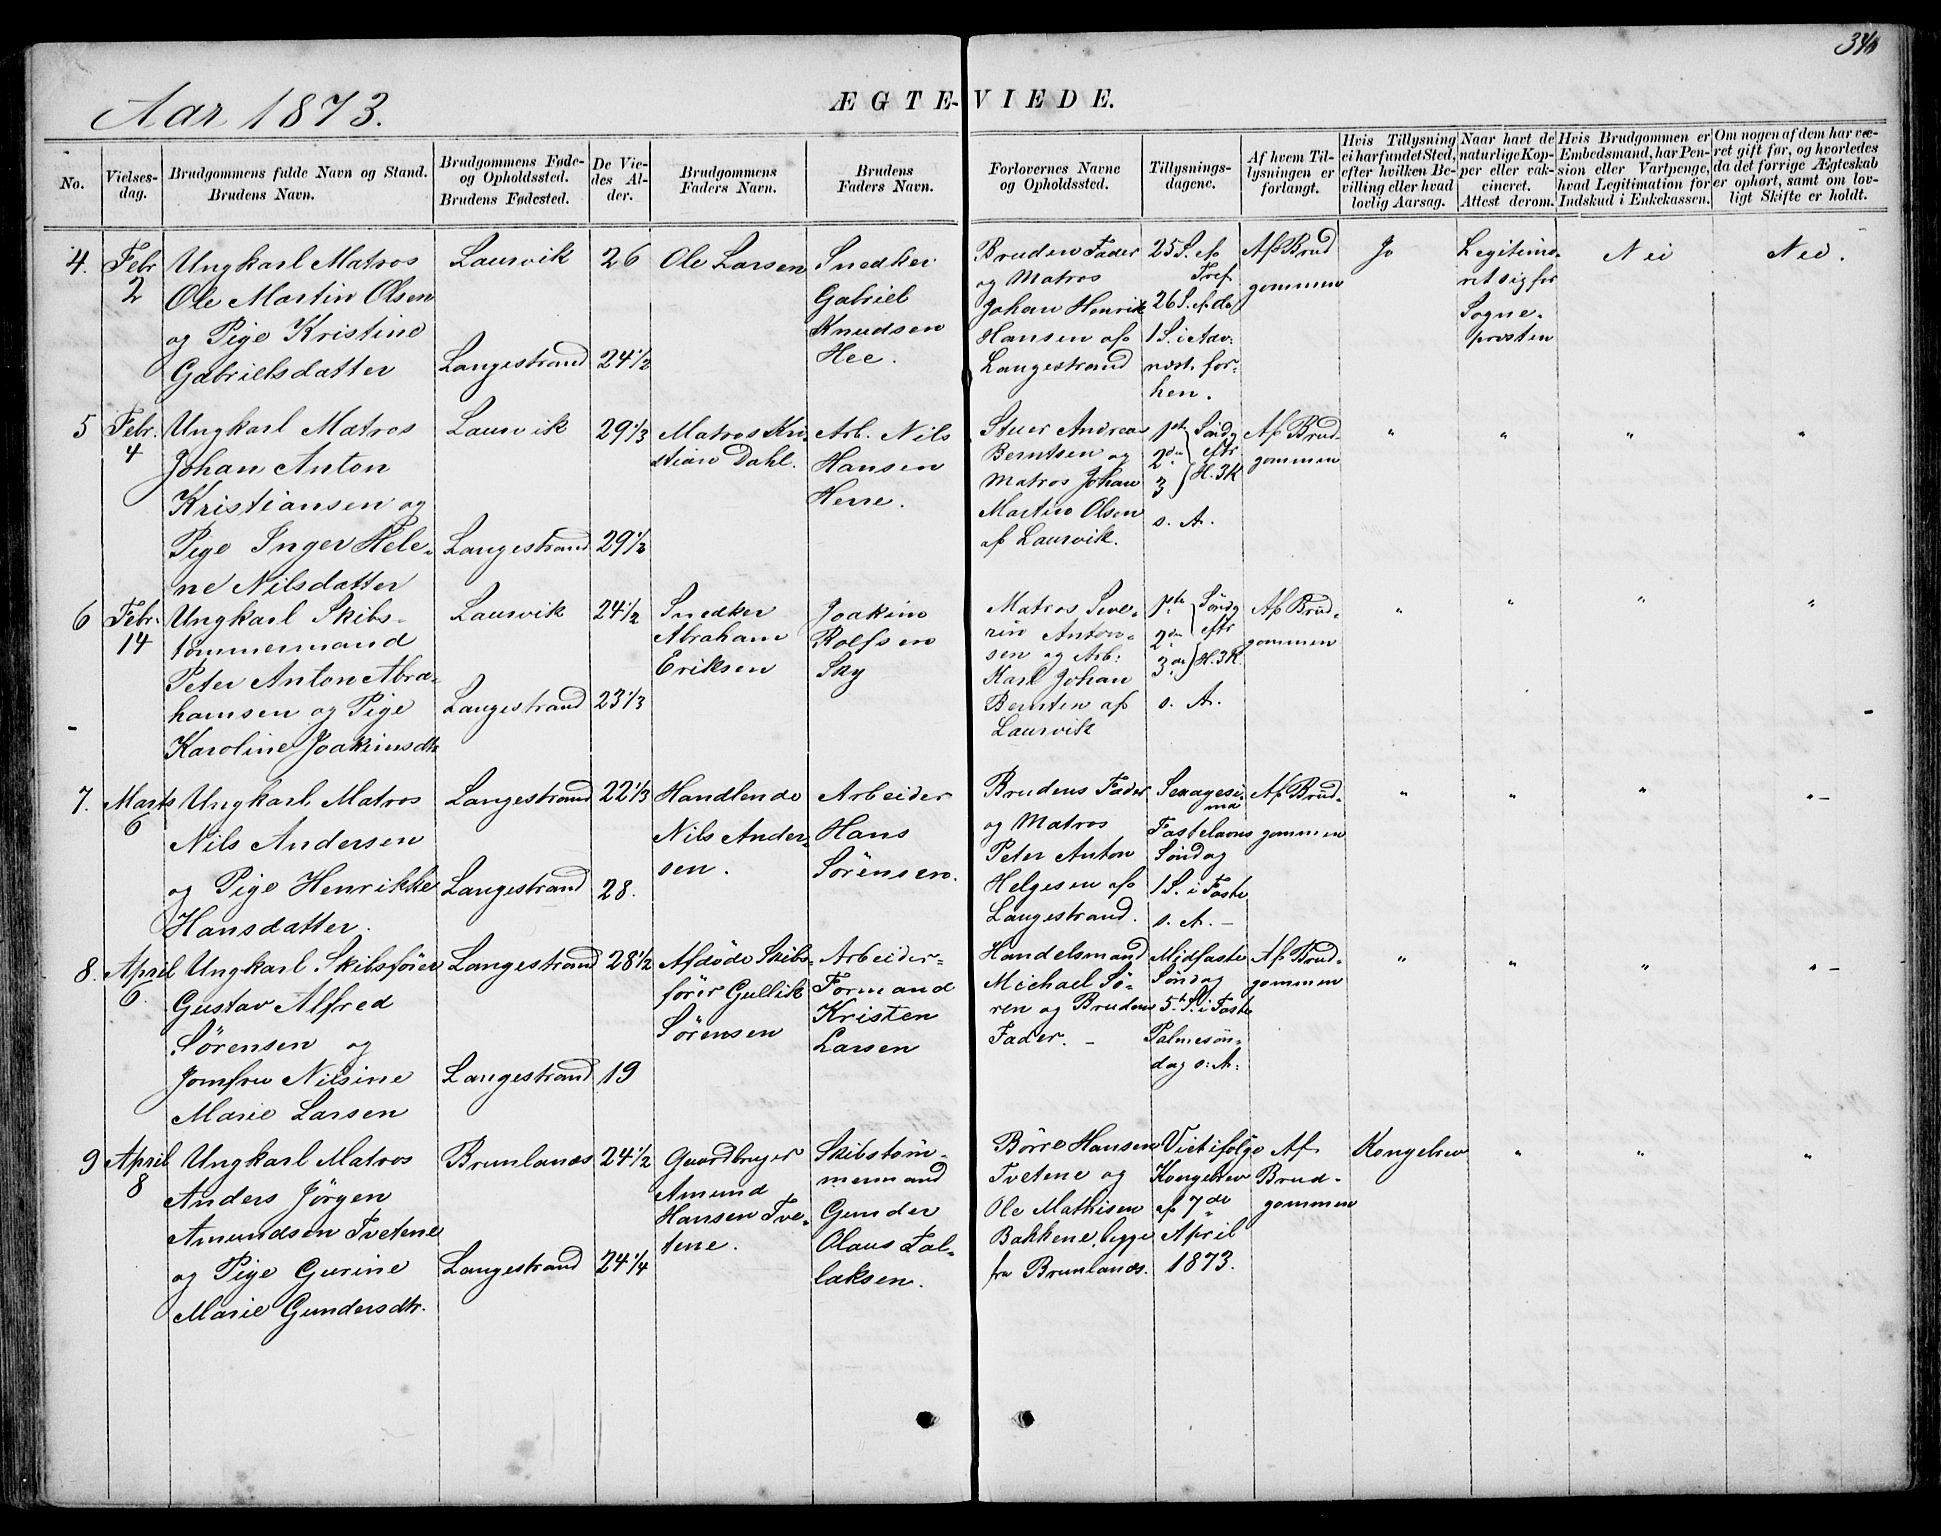 340
Aar 1873.
ÆGTE-VIEDE.
No.
Vielses-
dag.
Brudgommens fulde Navn og Stand.
Brudens Navn.
Brudgommens Føde-
og Opholdssted.
Brudens Fødested.
De Vie-
des Al-
der.
Brudgommens
Faders Navn.
Brudens
Faders Navn.
Forlovernes Navne
og Opholdssted.
Tillysnings-
dagene.
Af hvem Til-
lysningen er
forlangt.
Hvis Tillysning
ei har fundet Sted,
efter hvilken Be-
villing eller hvad
lovlig Aarsag.
Naar havt de
naturlige Kop-
per eller vak-
cineret.
Attest derom.
Hvis Brudgommen er
Embedsmand, har Pen-
sion eller Vartpenge,
hvad Legitimation for
Indskud i Enkekassen.
Om nogen af dem har væ-
ret gift før, og hvorledes
da det forrige Ægteskab
er ophørt, samt om lov-
ligt Skifte er holdt.
4.
Febr
2
Ungkarl Matros
Ole Martin Olsen
og Pige Kristine
Gabrielsdatter
Laurvik
Langestrand
26
24 1/2
Ole Larsen
Snedker
Gabriel
Knudsen
Hee.
Bruden Fader
og Matros
Johan Henrik
Hansen af
Langestrand
25 S. ef.
Tref.
26 S. ef. do
1 S. i Adv.
næst. for-
hen.
Af Brud
gommen
Jo
Legitime-
ret sig for
Sogne-
presten
Nei
Nei.
5
Febr.
4
Ungkarl Matros
Johan Anton
Kristiansen og
Pige Inger Hele-
ne Nilsdatter
Laurvik
Langestrand
29 1/3
29 1/2
Matros Kri-
stian Dahl.
Arb. Nils
Hansen
Herre.
Stuer Andreas
Berntsen og
Matros Johan
Martin Olsen
af Laurvik.
1ste
2den
3
Søndg
eftr
H. 3 K
s. A.
Af Brud-
gommen
"
"
"
"
6
Febr.
14
Ungkarl Skibs-
tømmermand
Peter Anton Abra-
hamsen og Pige
Karoline Joakimsdtr
Laurvik
Langestrand
24 1/2
23 1/3
Snedker
Abraham
Eriksen
Joakim
Rolfsen
Sky
Matros Seve-
rin Anton-
sen og Arb:
Karl Johan
Berntsn af
Laurvik
1ste
2den
3die
Søndg
eftr
H. 3 K
s. A.
Af Brud-
gommen
"
"
"
"
7.
Marts
6
Ungkarl Matros
Nils Andersen
og Pige Henrikke
Hansdatter.
Langestrand
Langestrand
22 1/3
28.
Handlende
Nils Ander-
sen.
Arbeider
Hans
Sørensen.
Brudens Fader
og Matros
Peter Anton
Helgesen af
Langestrand.
Sexagesi-
ma
Fastelavns
Søndag
1 S. i Faste
s. A. –
Af Brud-
gommen
"
"
"
" –
8.
April
6.
Ungkarl Skibsfører
Gustav Alfred
Sørensen og
Jomfru Nilsine
Marie Larsen
Langestrand
Langestrand
28 1/2
19
Afdøde Skibs-
fører Gullik
Sørensen
Arbeider-
Formand
Kristen
Larsen
Handelsmand
Michael Sø-
ren og Brudens
Fader. –
Midfaste
Søndag
5te S. i Faste
Palmesøn-
dag s: A:
Af Brud-
gommen
"
"
"
" –
9
April
8
Ungkarl Matros
Anders Jörgen
Amundsen Tvetene
og Pige Gurine
Marie Gundersdtr.
Brunlanæs
Langestrand
24 1/2
24 1/4
Gaardbruger
Amund
Hansen Tve-
tene.
Skibstøm-
mermand
Gunder
Olaus Tal-
laksen.
Börre Hansen
Tvetene og
Ole Mathisen
Bakkene, begge
fra Brunlanæs.
Viet ifølge
Kongebrev
af 7de
April
1873.
Af
Brud-
gommen
Kongebrev
"
"
"